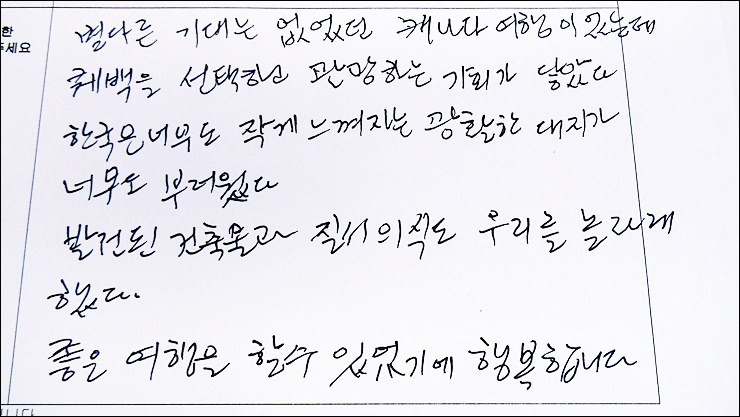 한
주세요
별다른 기대는 없었던 캐나다 여행이었는데
퀘백을 선택하고 관망하는 기회가 닿았다
한국은 너무도 작게 느껴지는 광활한 대지가
너무도 부러웠다
발전된 건축물과 질서의식도 우리를 놀라게
했다.
좋은 여행을 할수 있었기에 행복합니다
니다